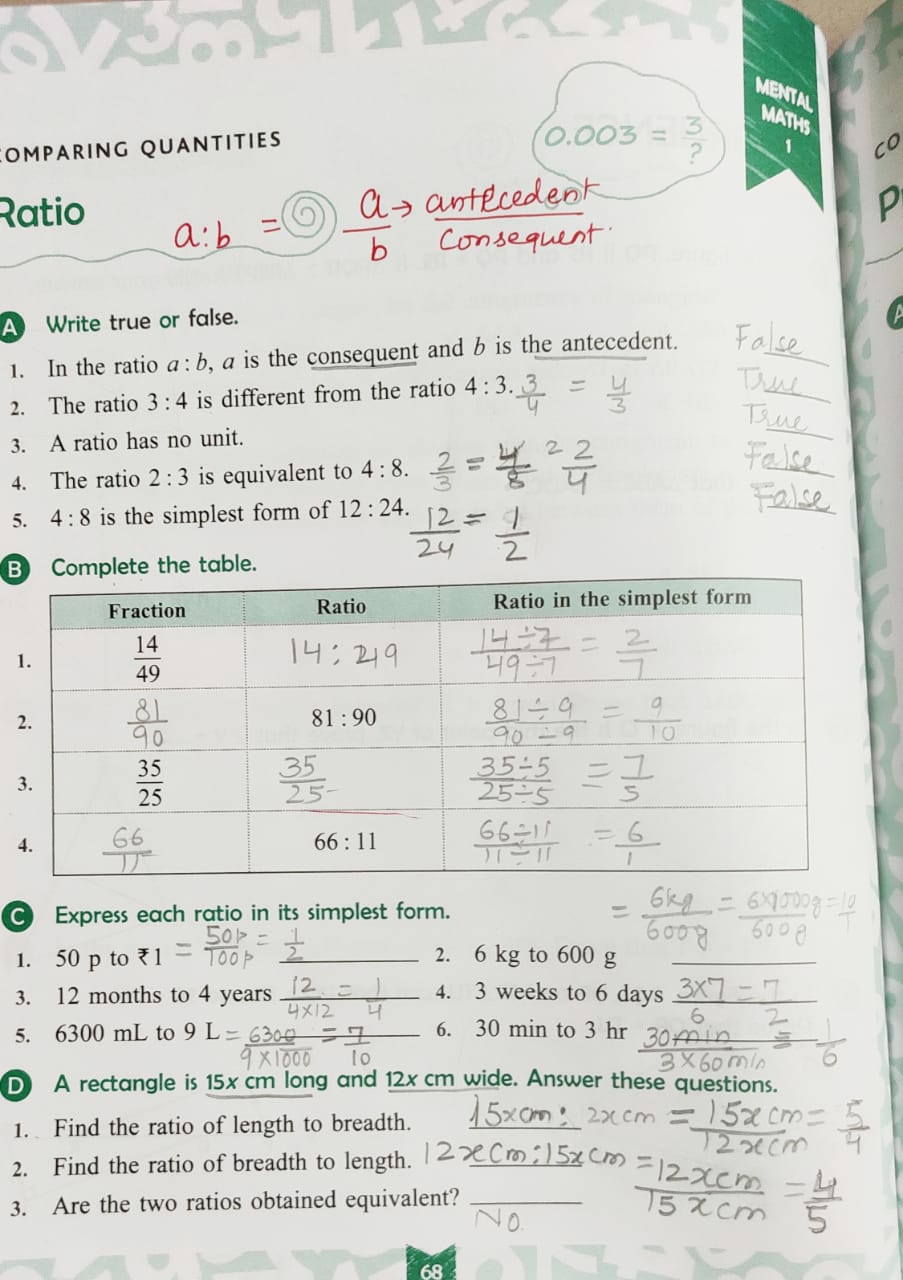 MENTAL MATHS 1
COMPARING QUANTITIES
0.003 = 3/?
Ratio
a:b = a/b → antecedent/Consequent.
A Write true or false.
1. In the ratio a : b, a is the consequent and b is the antecedent. False
2. The ratio 3 : 4 is different from the ratio 4 : 3. 3/4 = 4/3 True
3. A ratio has no unit. True
4. The ratio 2 : 3 is equivalent to 4 : 8. 2/3 = 4/8 2 2/4 False
5. 4 : 8 is the simplest form of 12 : 24. 12/24 = 1/2 False
B Complete the table.
Fraction Ratio Ratio in the simplest form
1. 14/49 14 : 249 14÷7/49÷7 = 2/7
2. 81/90 81 : 90 81÷9/90÷9 = 9/10
3. 35/25 35/25 35÷5/25÷5 = 7/5
4. 66/11 66 : 11 66÷11/11÷11 = 6/1
C Express each ratio in its simplest form. = 6kg/600g = 6×1000g/600g = 10/1
1. 50 p to ₹1 = 50p/100p = 1/2 2. 6 kg to 600 g
3. 12 months to 4 years 12/4×12 = 1/4 4. 3 weeks to 6 days 3×7/6 = 7/2
5. 6300 mL to 9 L = 6300/9×1000 = 7/10 6. 30 min to 3 hr 30min/3×60min = 1/6
D A rectangle is 15x cm long and 12x cm wide. Answer these questions.
1. Find the ratio of length to breadth. 15xcm : 2xcm = 15xcm/12xcm = 5/4
2. Find the ratio of breadth to length. 12xcm : 15xcm = 12xcm/15xcm = 4/5
3. Are the two ratios obtained equivalent? No.
68
CO
P
A